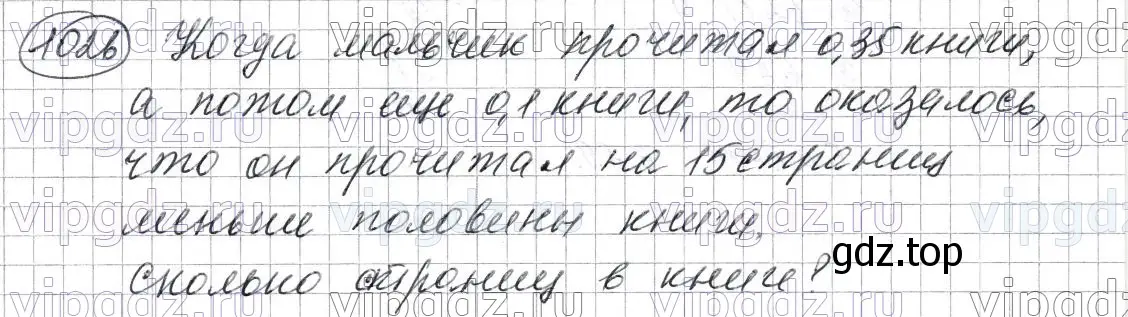 1026 Когда мальчик прочитал 0,35 книги,
а потом еще 0,1 книги, то оказалось,
что он прочитал на 15 страниц
меньше половины книги.
Сколько страниц в книге?
gdz.top
vipgdz.ru